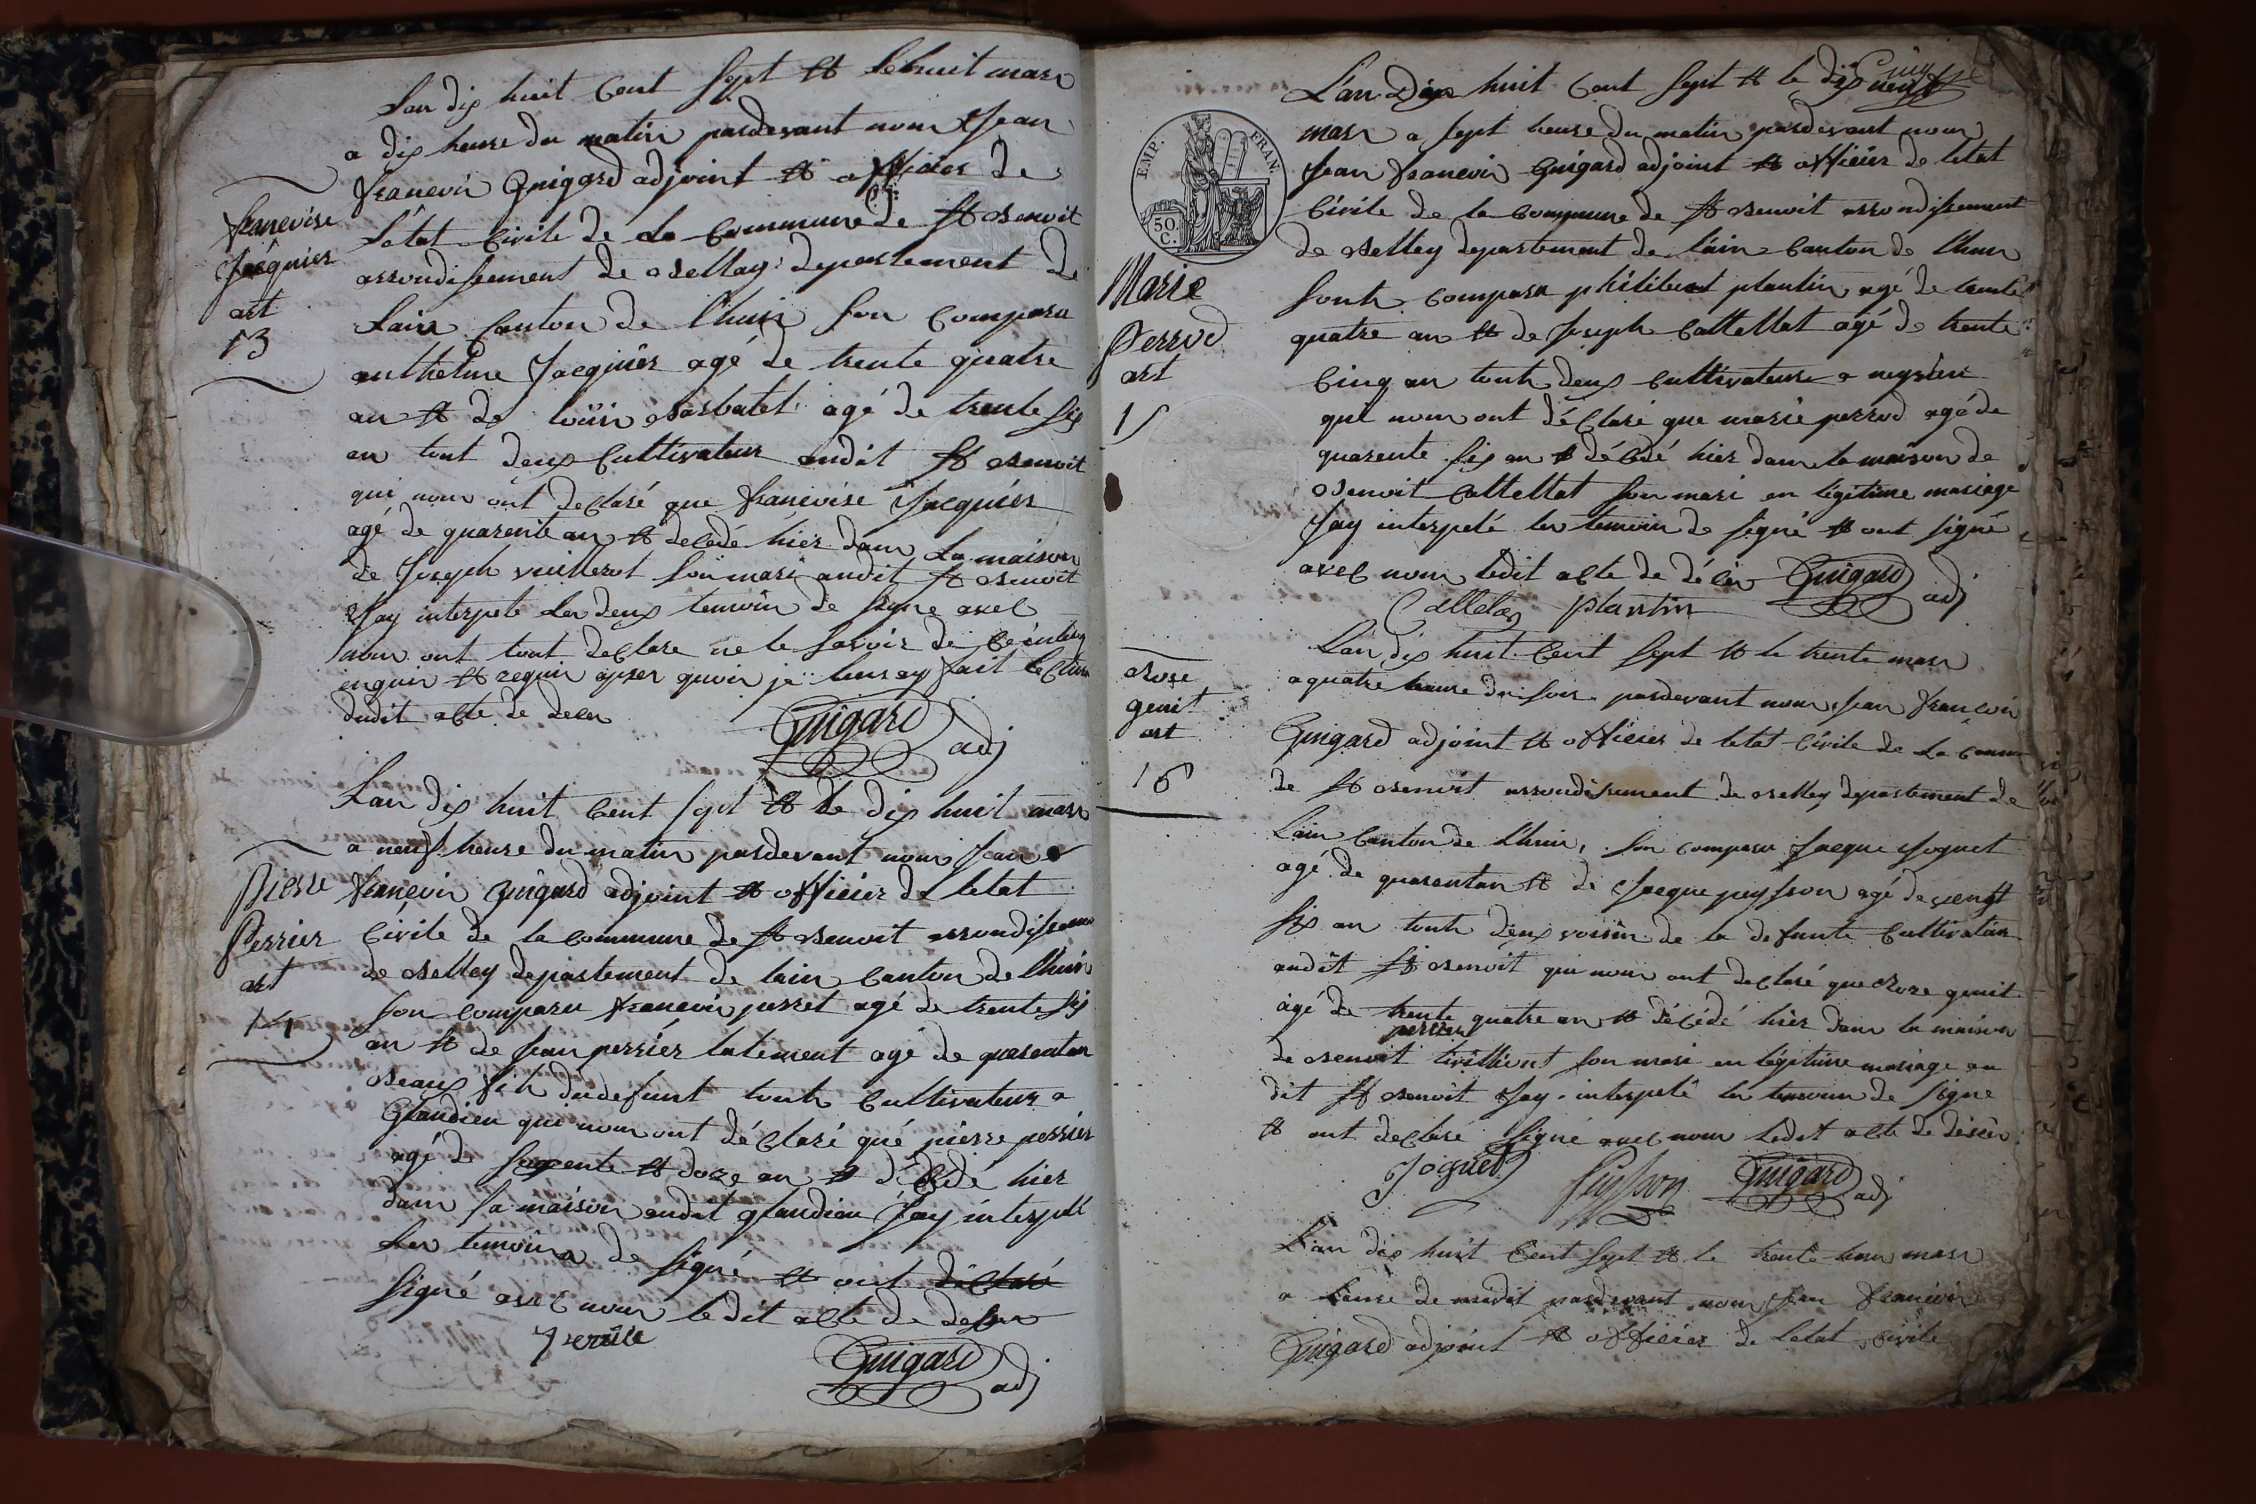 Lan dix huit Cent Sept et le huit mars
a dix heure du matin pardevant nous Jean
francois Guigard adjoint et officier de
Létat Civile de La Commune de St Benoit
arrondissement de Bellay departement de
Lain Canton de Lhuis son Comparu
anthelme Jacquier agé de trente quatre
an et de louis Barbatet agé de trente six
an tout deux Cultivateur audit St Benoit
qui nous ont declaré que francoise Jacquier
agé de quarente an et décédé hier dans La maison
de Joseph vuillerot son mari audit St Benoit
Jay interpelé Les deux temoin de signe avec
nous ont tout declare ne le savoir de ce
enquis et requis apres quoi je leur ay fait lecture
dudit acte de deces
Guigard adj
francoise
Jacquier
art
13
Lan dix huit Cent sept et le dix huit mars
a neuf heure du matin pardevant nous Jean
francois Guigard adjoint et officier de letat
Civile de la commune de St Benoit arrondissement
de Belley departement de lain Canton de Lhuis
son comparu francois perret agé de trente six
an et de Jean perrier latement agé de quarentan
Beaux fils du defunt touts Cultivateur a
Glandieu qui nous ont déclaré qué pierre perrier
agé de soixente et doze an et décédé hier
dans sa maison audit glandieu Jay interpelé
Les temoin de signé et ont déclaré
signé avec nous ledit acte de deces
Guigard adj
Pierre
Perrier
art
14
L'an Dix huit Cent sept et le dix neuf
mars a sept heure du matin pardevant nous
Jean francois Guigard adjoint et officier de letat
Civile de la commune de St Benoit arrondissement
de Belley departement de lain Canton de Lhuis
sont comparu philibert plantin agé de trente
quatre an et de Joseph Callettat agé de trente
Cinq an touts deux Cultivateur a
qui nous ont déclaré que marie perrod agé de
quarente six an et décédé hier dans la maison de
Benoit Callettat son mari en légitime mariage
Jay interpelé les temoin de signé et ont signé
avec nous ledit acte de décès Guigard adj
plantin
EMP. FRAN.
50.
C.
Marie
Perrod
art
15
L'an dix huit Cent sept et le trente mars
a quatre heure du soir pardevant nous Jean francois
Guigard adjoint et officier de letat Civile de La Commune
de St Benoit arrondissement de Belley departement de
Lain Canton de Lhuis, son comparu Jacque Joguet
agé de quarentan et de Jacque peysson agé de vengt
six an touts deux voisin de la defunte Cultivateur
audit St Benoit qui nous ont declaré que Roze genit
agé de trente quatre an et décédé hier dans la maison
perrier
de Benoit son mari en légitime mariage au
dit St Benoit Jay interpelé les temoin de signe
et ont declaré signé avec nous ledit acte de décès
Joguet Peysson Guigard adj
Roze
genit
art
16
L'an dix huit Cent sept et le trente heun mars
a heure de midit pardevant nous Jean francois
Guigard adjoint et officier de Letat civile